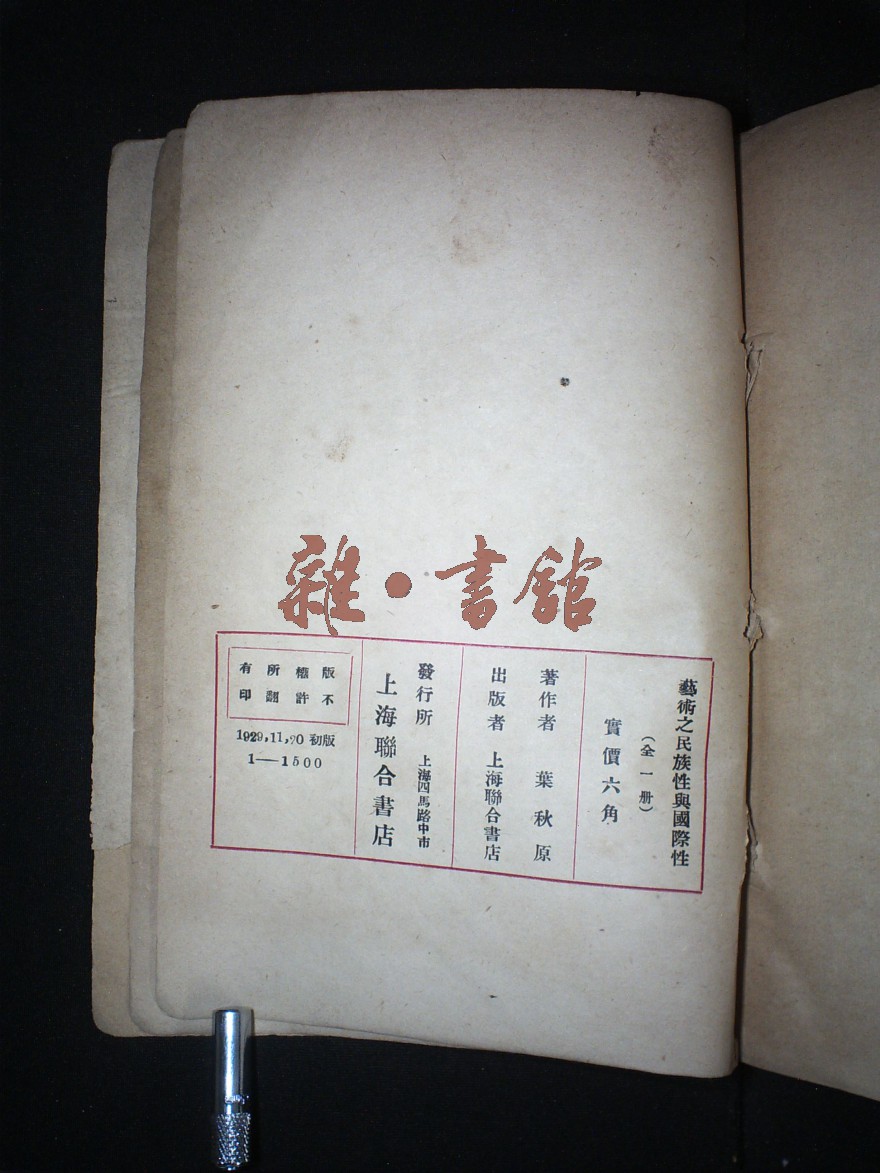 雜·書館
藝術之民族性與國際性
（全一册）
實價六角
著作者 葉秋原
出版者 上海聯合書店
發行所 上海四馬路中市
上海聯合書店
版權所有
不許翻印
1929,11,20 初版
1—1500